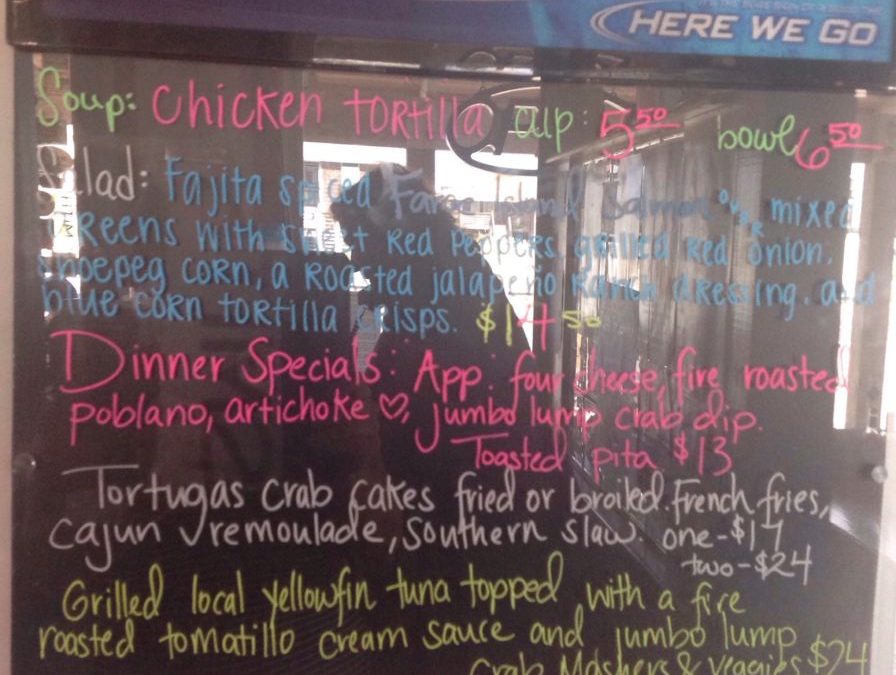 HERE WE GO
Soup: Chicken Tortilla cup: 5.50 bowl 6.50
Salad: Fajita spiced Faroe Island Salmon over mixed
Greens with sweet Red Peppers, grilled Red Onion,
shoepeg corn, a Roasted jalapeño Ranch dressing, and
blue corn tortilla crisps. $14.50
Dinner Specials: App: four cheese, fire roasted
poblano, artichoke ♡, jumbo lump crab dip.
Toasted pita $13
Tortugas crab cakes fried or broiled. French fries,
cajun remoulade, southern slaw. one-$17
two-$24
Grilled local yellowfin tuna topped with a fire
roasted tomatillo cream sauce and jumbo lump
crab. Mashers & veggies $24